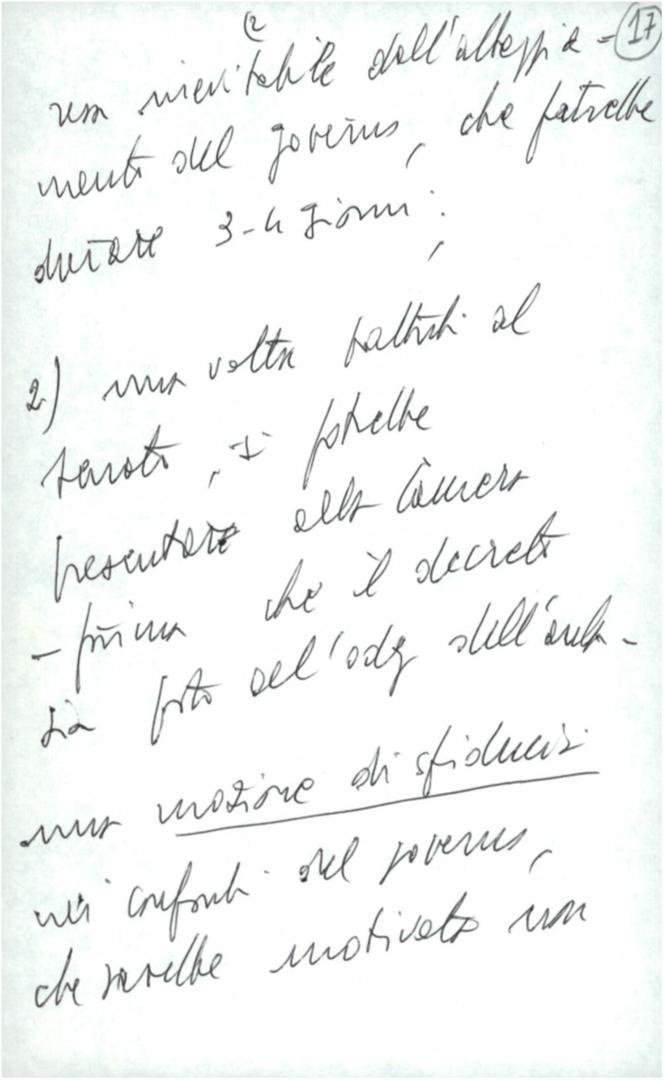 (2
17
non inevitabile dall'atteggia-
mento del governo, che potrebbe
durare 3-4 giorni;
2) una volta battuti al
senato, si potrebbe
presentare alla Camera
- prima che il decreto
sia posto all'odg dell'aula -
una mozione di sfiducia
nei confronti del governo,
che sarebbe motivata non